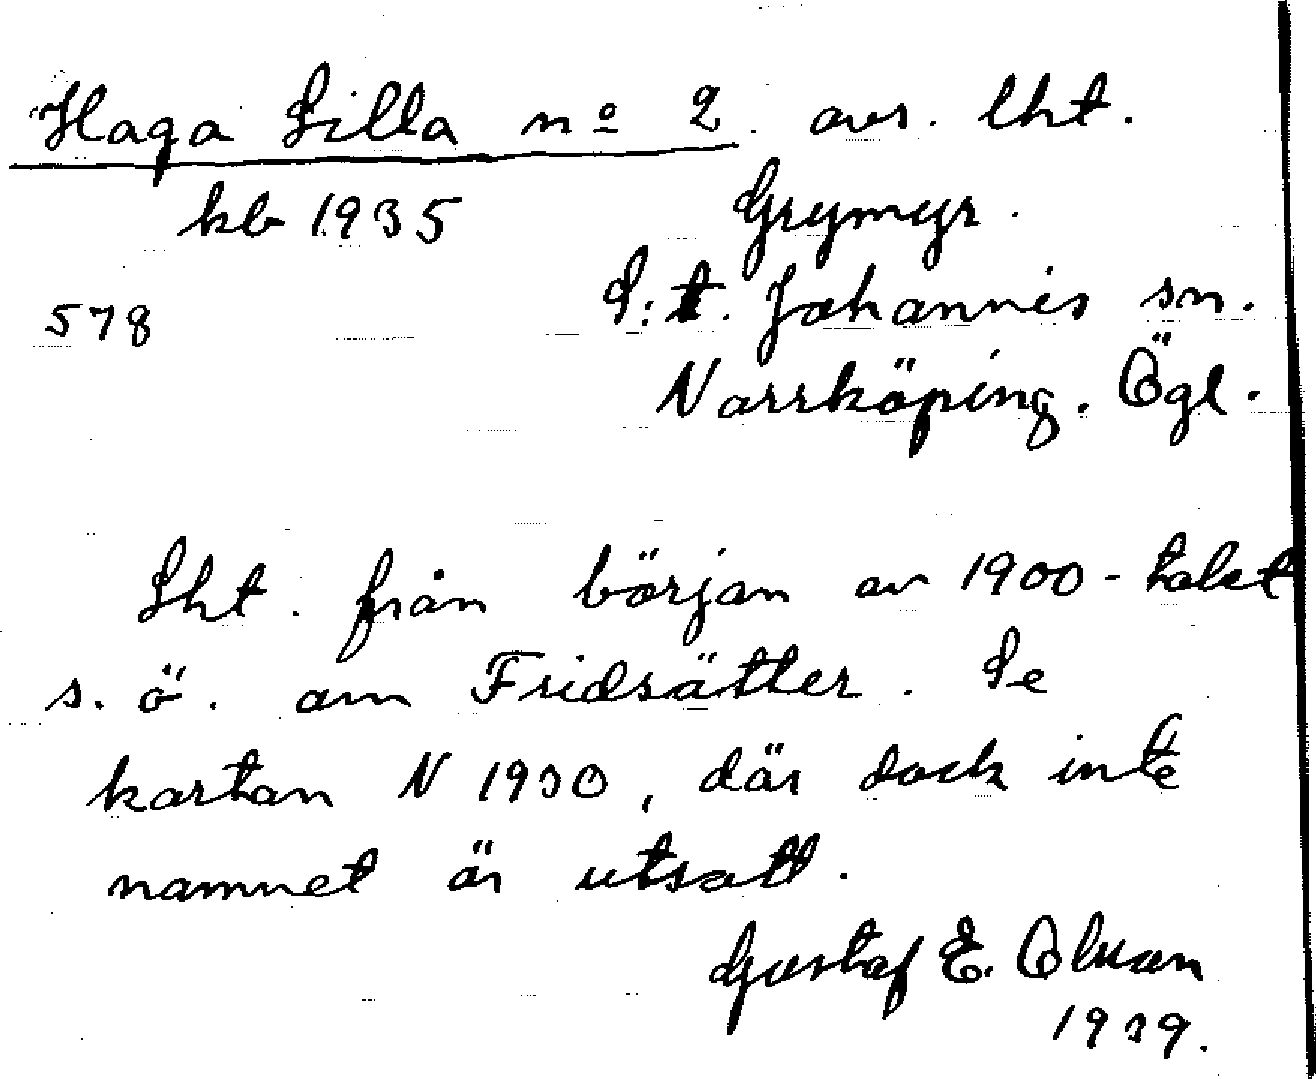 Haga Lilla nº 2. avs. lht.
kb 1935 Grymyr.
578 S:t. Johannis sn.
Norrköping. Ögl.
Lht. från början av 1900-talet
s.ö. om Fridsätter. Se
kartan N 1930, där dock inte
namnet är utsatt.
Gustaf E. Olsson
1939.